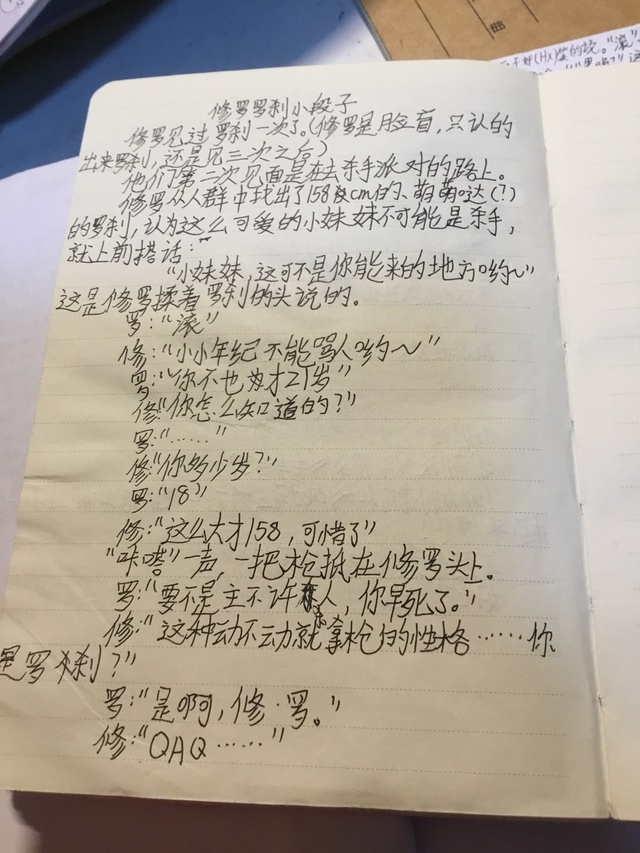 修罗罗刹小段子
修罗见过罗刹一次了。(修罗是脸盲，只认的
出来罗刹，还是见三次之后)
他们第二次见面是在去杀手派对的路上。
修罗从人群中找出了158cm的、萌萌哒(?)
的罗刹，认为这么可爱的小妹妹不可能是杀手，
就上前搭话：
“小妹妹，这可不是你能来的地方哟～”
这是修罗揉着罗刹的头说的。
罗：“滚”
修：“小小年纪不能骂人哟～”
罗：“你不也才21岁”
修：“你怎么知道的？”
罗：“……”
修：“你多少岁？”
罗：“18”
修：“这么大才158，可惜了”
“咔嗒”一声，一把枪抵在修罗头上。
罗：“要不是主不许杀人，你早死了。”
修：“这种动不动就拿枪的性格……你
是罗刹？”
罗：“是啊，修·罗。”
修：“QAQ……”
的说。“滚”